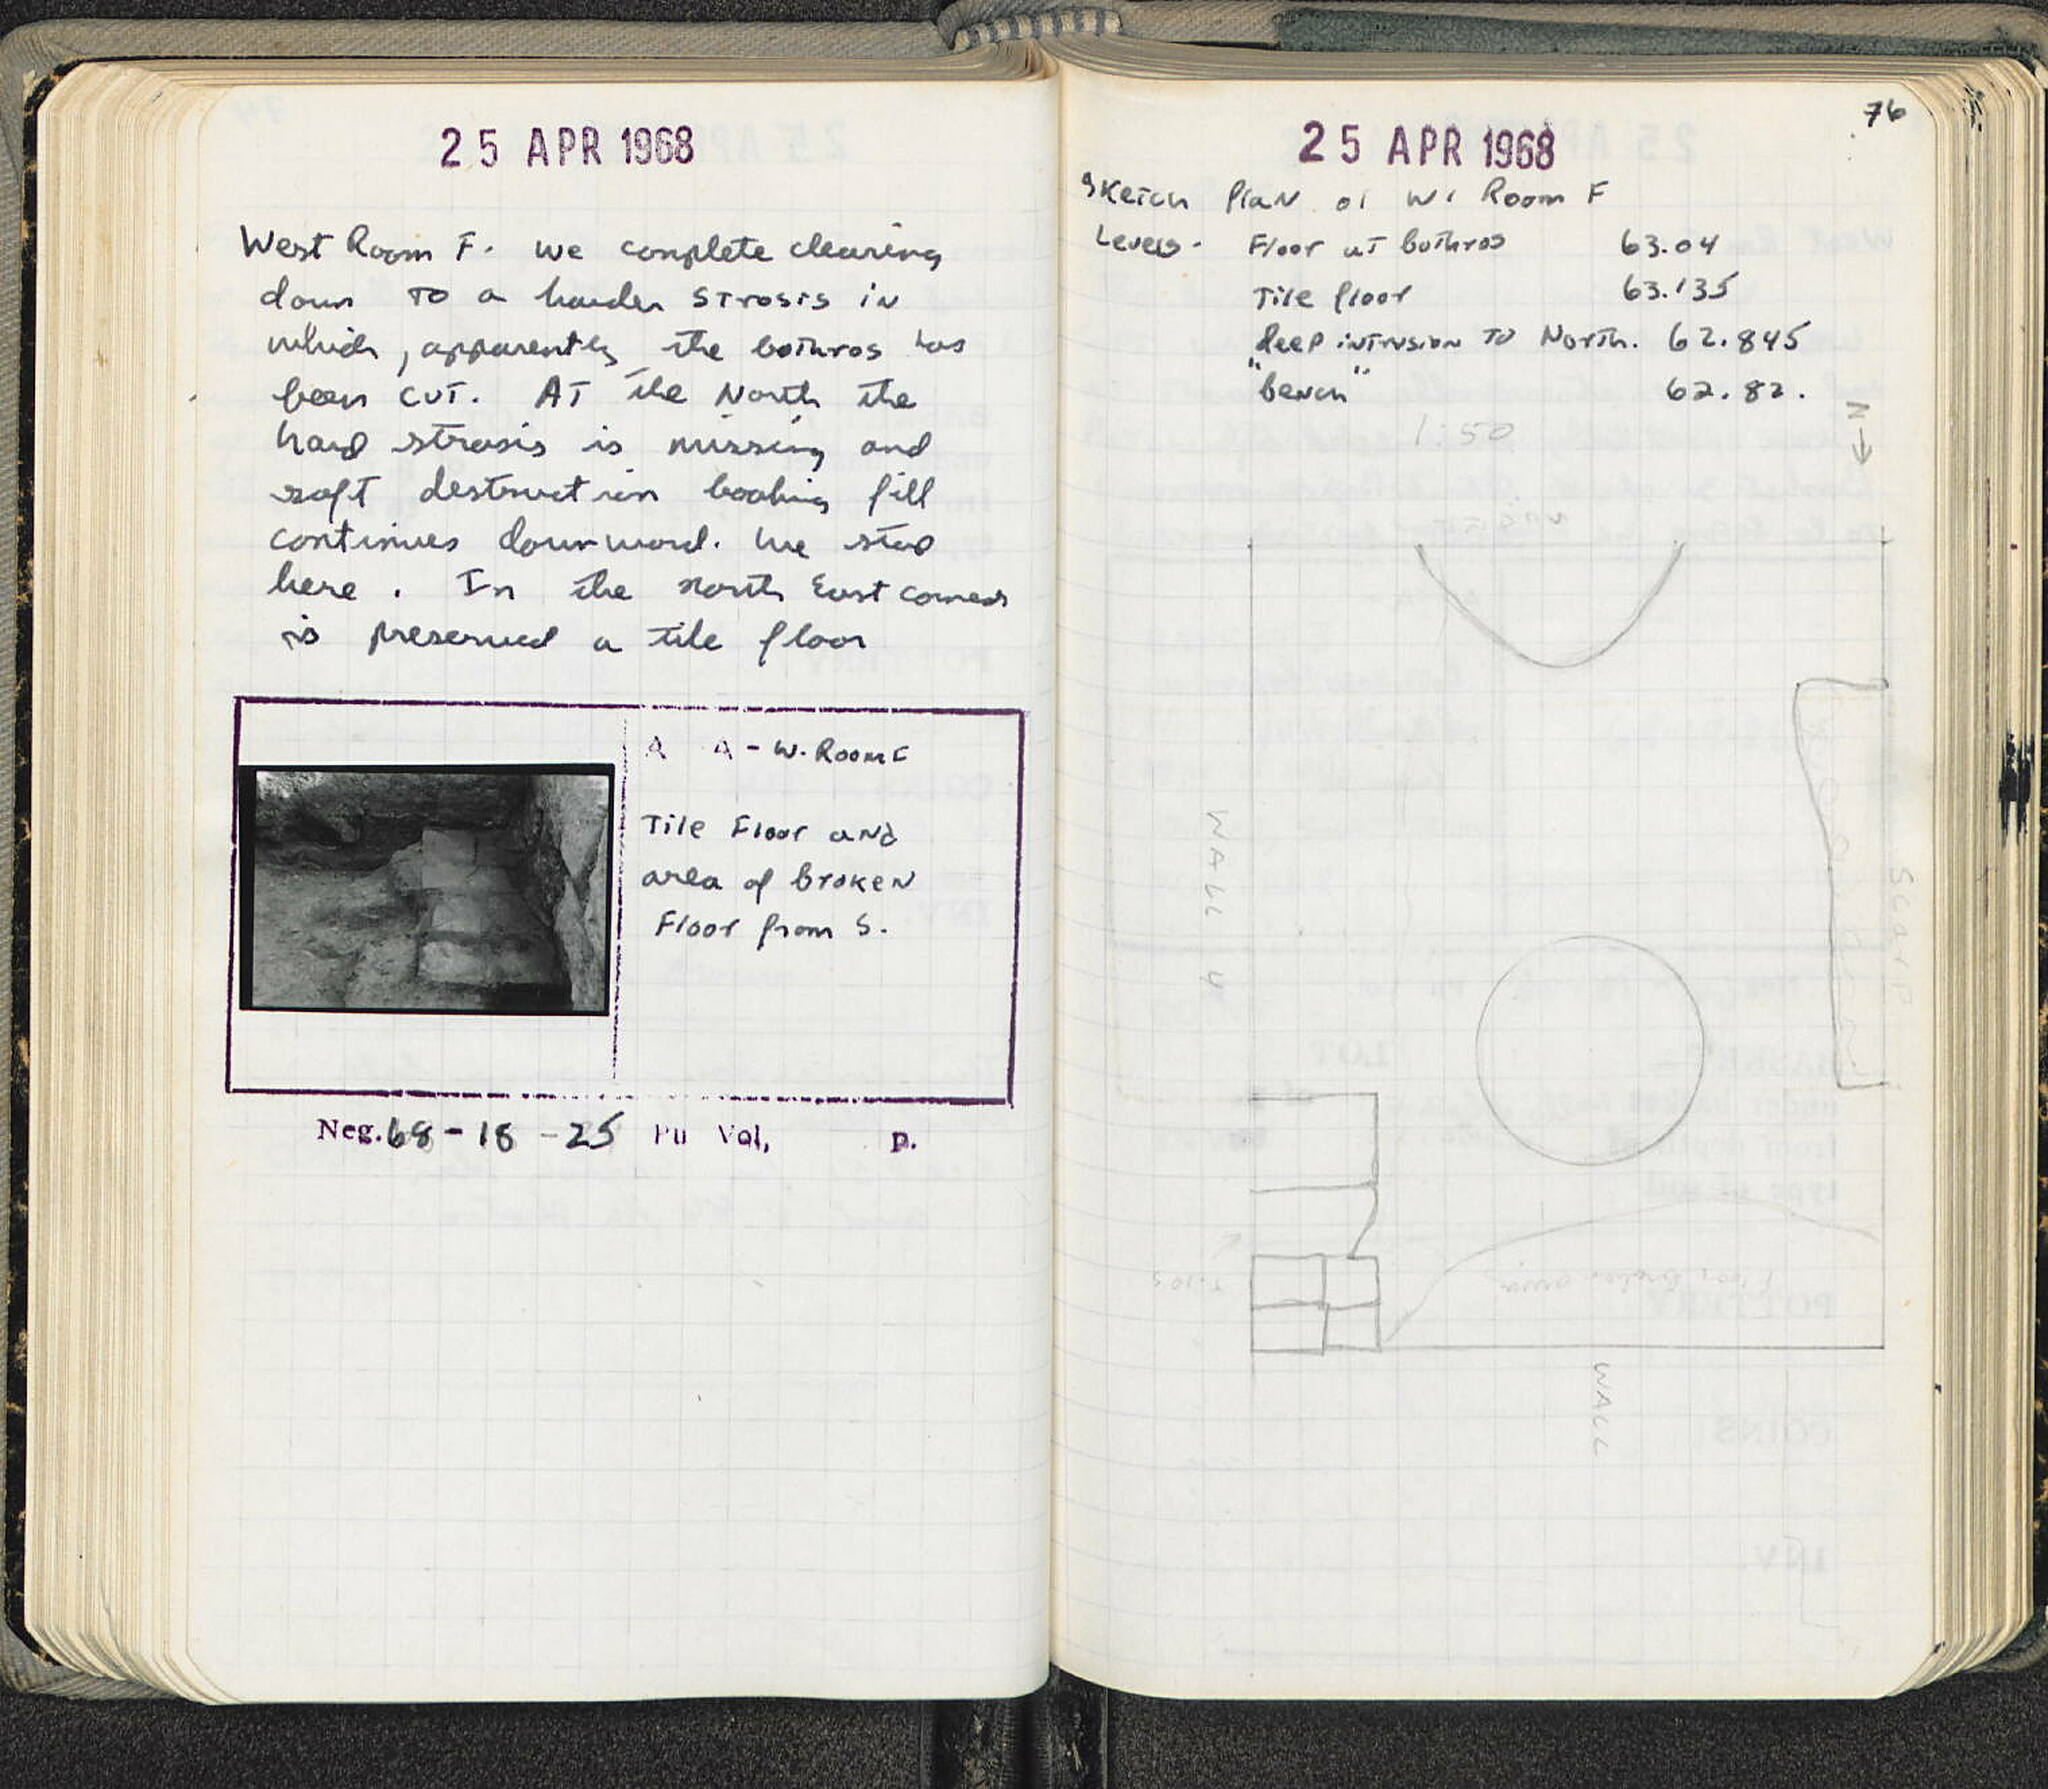 25 APR 1968
West Room F. we complete clearing
down to a harder strosis in
which, apparently the bothros has
been cut. At the North the
hard strosis is missing and
soft destruction looking fill
continues downward. We stop
here. In the north East corner
is preserved a tile floor
A A - W. Room F
Tile Floor and
area of broken
Floor from S.
Neg. 68 - 18 - 25 Pu Vol, p.
76
25 APR 1968
Sketch Plan of W. Room F
Levels. Floor at bothros 63.04
Tile floor 63.135
deep intrusion to North. 62.845
"bench" 62.82.
1:50
N
WALL 4
Scarp
Tiles
Floor broken away
WALL